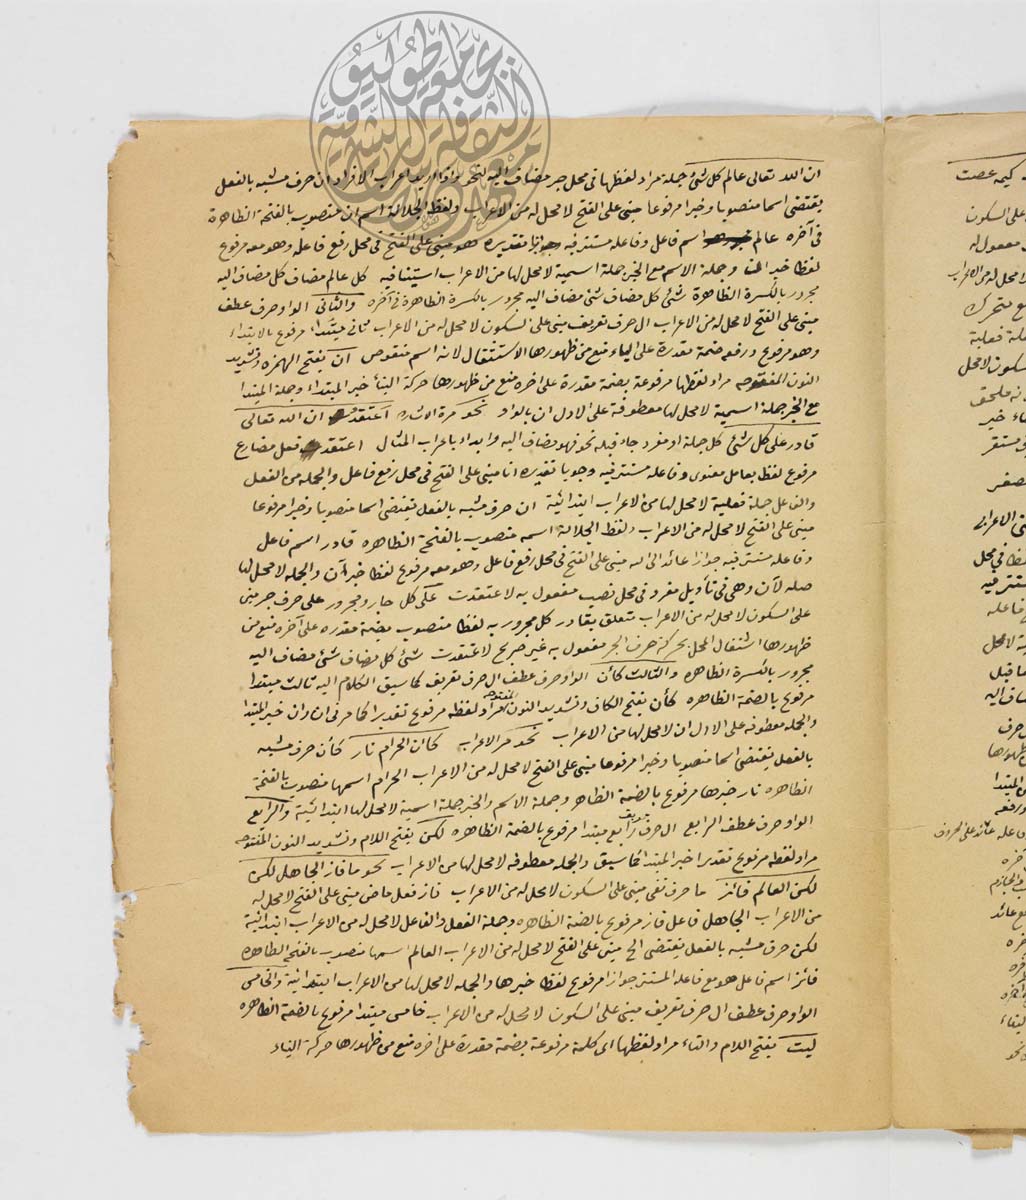 ان الله تعالى عالم كل شئ جملة مراد لفظها في محل جر مضاف اليه لنحو واذا اريد اعراب الافراد ان حرف مشبه بالفعل
يقتضى اسما منصوبا وخبرا مرفوعا مبنى على الفتح لا محل له من الاعراب ولفظ الجلالة اسم ان منصوب بالفتحة الظاهرة
فى آخره عالم اسم فاعل وفاعله مستتر فيه جوازا تقديره هو مبنى على الفتح فى محل رفع فاعله وهو معه مرفوع
لفظا خبر ان وجملة الاسم مع الخبر جملة اسمية لا محل لها من الاعراب استينافيه كل عالم مضاف كل مضاف اليه
مجرور بالكسرة الظاهرة شئ كل مضاف شئ مضاف اليه مجرور بالكسرة الظاهرة فى آخره والثانى الواو حرف عطف
مبنى على الفتح لا محل له من الاعراب ال حرف تعريف مبنى على السكون لا محل له من الاعراب ثانى مبتدا مرفوع بالابتداء
وهو مرفوع ورفعه ضمة مقدرة على الياء منع من ظهورها الاستثقال لانه اسم منقوص ان بفتح الهمزه وتشديد
النون المفتوحه مراد لفظها مرفوعة بضمة مقدرة على اخره منع من ظهورها حركة البنا خبر المبتداء وجملة المبتدا
مع الخبر جملة اسمية لا محل لها معطوفة على الاول ان بالواو نحو مرة الاشاره اعتقد ان الله تعالى
قادر على كل شئ كل جملة او مفرد جاء قبله نحو فهو مضاف اليه وابداء باعراب المثال اعتقد فعل مضارع
مرفوع لفظا بعامل معنوى وفاعله مستتر فيه وجوبا تقديره انا مبنى على الفتح فى محل رفع فاعل والجمله من الفعل
والفاعل جملة فعلية لا محل لها من الاعراب ابتدائية ان حرف مشبه بالفعل يقتضى اسما منصوبا وخبرا مرفوعا
مبنى على الفتح لا محل له من الاعراب ولفظ الجلالة اسمه منصوب بالفتحة الظاهره قادر اسم فاعل
وفاعله مستتر فيه جوازا عائد الى الله مبنى على الفتح فى محل رفع فاعل وهو معه مرفوع لفظا خبر أن والجمله لا محل لها
صله لأن وهى فى تأويل مفرد فى محل نصب مفعول به لاعتقدت على كل جار ومجرور على حرف جر مبنى
على السكون لا محل له من الاعراب متعلق بقادر كل مجرور به لفظا منصوب بضمة مقدره على آخره منع من
ظهورها اشتغال المحل بحركة حرف الجر مفعول به غير صريح لاعتقدت شئ كل مضاف شئ مضاف اليه
مجرور بالكسرة الظاهره والثالث كأن الواو حرف عطف ال حرف تعريف كما سيق الكلام اليه ثالث مبتدا
مرفوع بالضمة الظاهره كأن بفتح الكاف وتشديد النون المفتوحه مراد لفظه مرفوع تقديرا كما مر فى ان وان خبر المبتدا
والجمله معطوفه على الاول ان لا محل لها من الاعراب نحو مر الاعراب كأن الحرام نار كأن حرف مشبه
بالفعل يقتضى اسما منصوبا وخبرا مرفوعا مبنى على الفتح لا محل له من الاعراب الحرام اسمها منصوب بالفتحة
الظاهره نار خبرها مرفوع بالضمة الظاهره وجملة الاسم والخبر جملة اسمية لا محل لها ابتدائية والرابع
الواو حرف عطف الرابع ال حرف تعريف رابع مبتدا مرفوع بالضمة الظاهره لكن بفتح اللام وتشديد النون المفتوحه
مراد لفظه مرفوع تقديرا خبر المبتدا كما سيق والجمله معطوفه لا محل لها من الاعراب نحو ما فاز الجاهل لكن
لكن العالم فائز ما حرف نفى مبنى على السكون لا محل له من الاعراب فاز فعل ماض مبنى على الفتح لا محل له
من الاعراب الجاهل فاعل فاز مرفوع بالضمة الظاهره وجملة الفعل والفاعل لا محل له من الاعراب ابتدائية
لكن حرف مشبه بالفعل يقتضى الخ مبنى على الفتح لا محل له من الاعراب العالم اسمها منصوب بالفتحة الظاهره
فائز اسم فاعل هو مع فاعله المستتر جوازا مرفوع لفظا خبرها والجمله لا محل لها من الاعراب ابتدائية والخامس
الواو حرف عطف ال حرف تعريف مبنى على السكون لا محل له من الاعراب خامس مبتدا مرفوع بالضمة الظاهره
ليت بفتح اللام والتاء مراد لفظها اى كلمة مرفوعة بضمة مقدرة على اخره منع من ظهورها حركة البناء